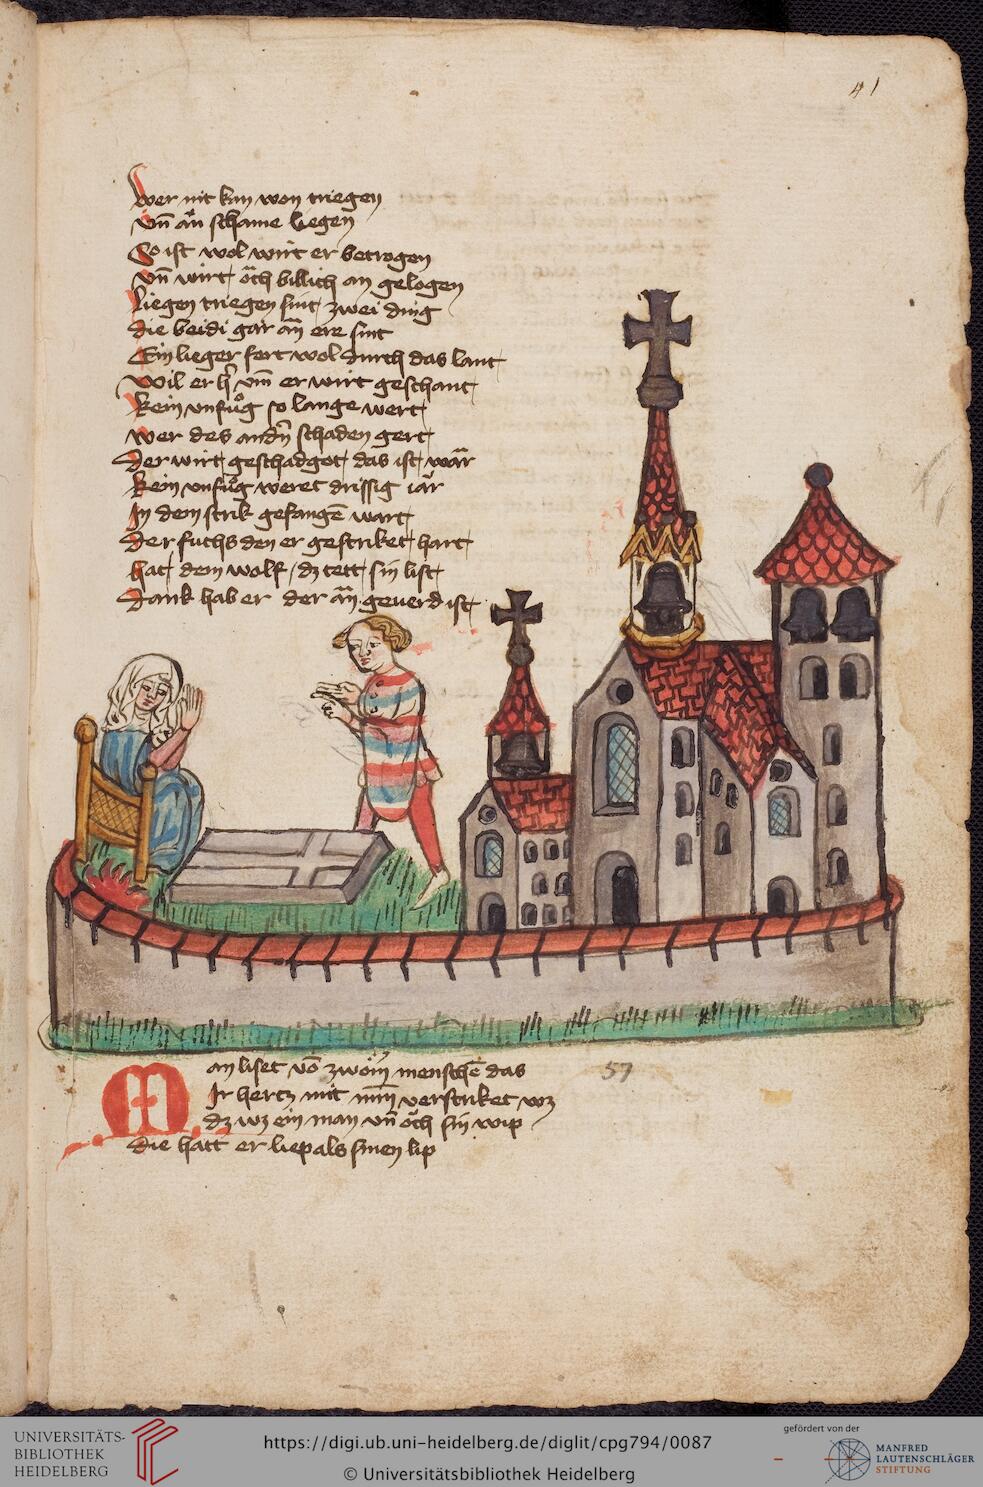 41
Wer nit kan von triegen
Vn̄ an̄ schame liegen
So ist wol wirt er betrogen
Vn̄ wirt öch billich an gelogen
Liegen triegen sint zwei ding
die beidi gar an̄ ere sint
Ein lieger fert wol durch das lant
Wil er hͬ vm̄ er wirt geschant
Kein vnfuͦg so lange wert
wer des andn̄ schaden gert
Der wirt geschadgot das ist war
Kein vnfuͦg weret drissig iar
In dem strik gefangē wart
Der fuchs den er gestriket hart
hat dem wolf / dz tett sin list
Dank hab er der an̄ geuerd ist
Man liset vō zwöin̄ menschē das
Ir hertz mit min̄ verstriket wz
dz wz ein man vn̄ öch sin wip
die hatt er liep als sinen lip
57
UNIVERSITÄTS-
BIBLIOTHEK
HEIDELBERG
https://digi.ub.uni-heidelberg.de/diglit/cpg794/0087
© Universitätsbibliothek Heidelberg
gefördert von der
MANFRED
LAUTENSCHLÄGER
STIFTUNG